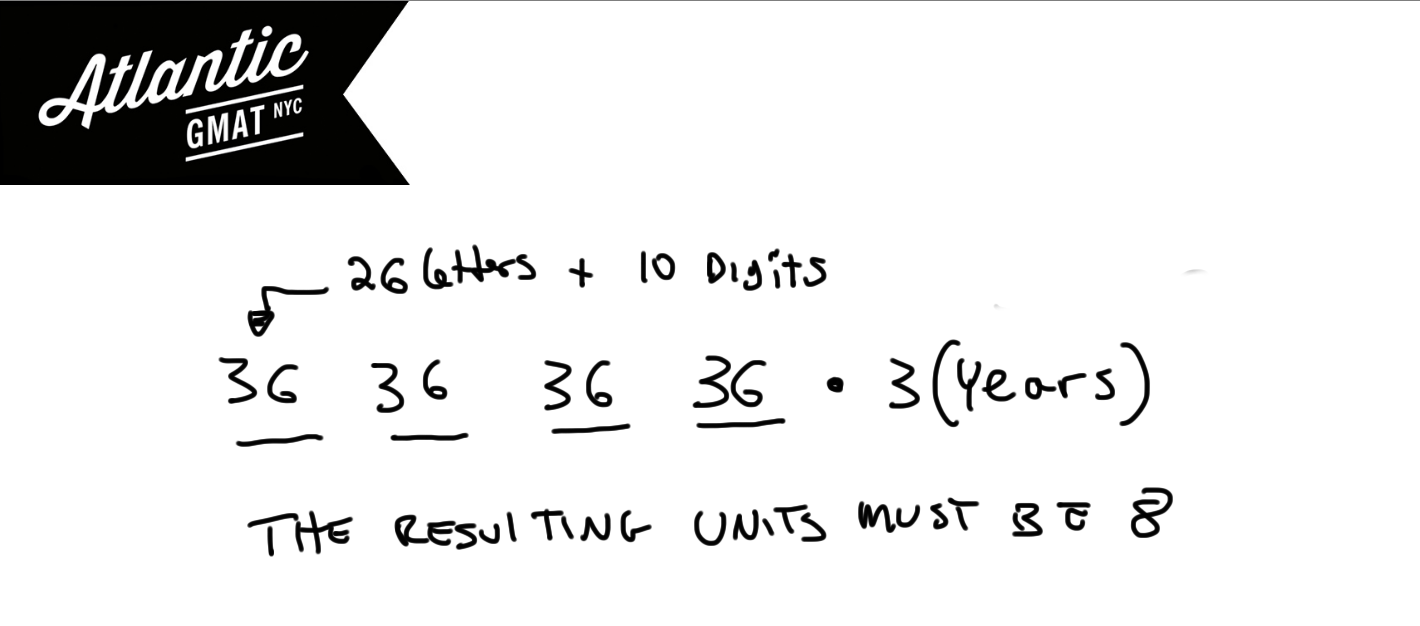 Atlantic
GMAT NYC
26 letters + 10 Digits
36 36 36 36 • 3 (Years)
THE RESULTING UNITS MUST BE 8